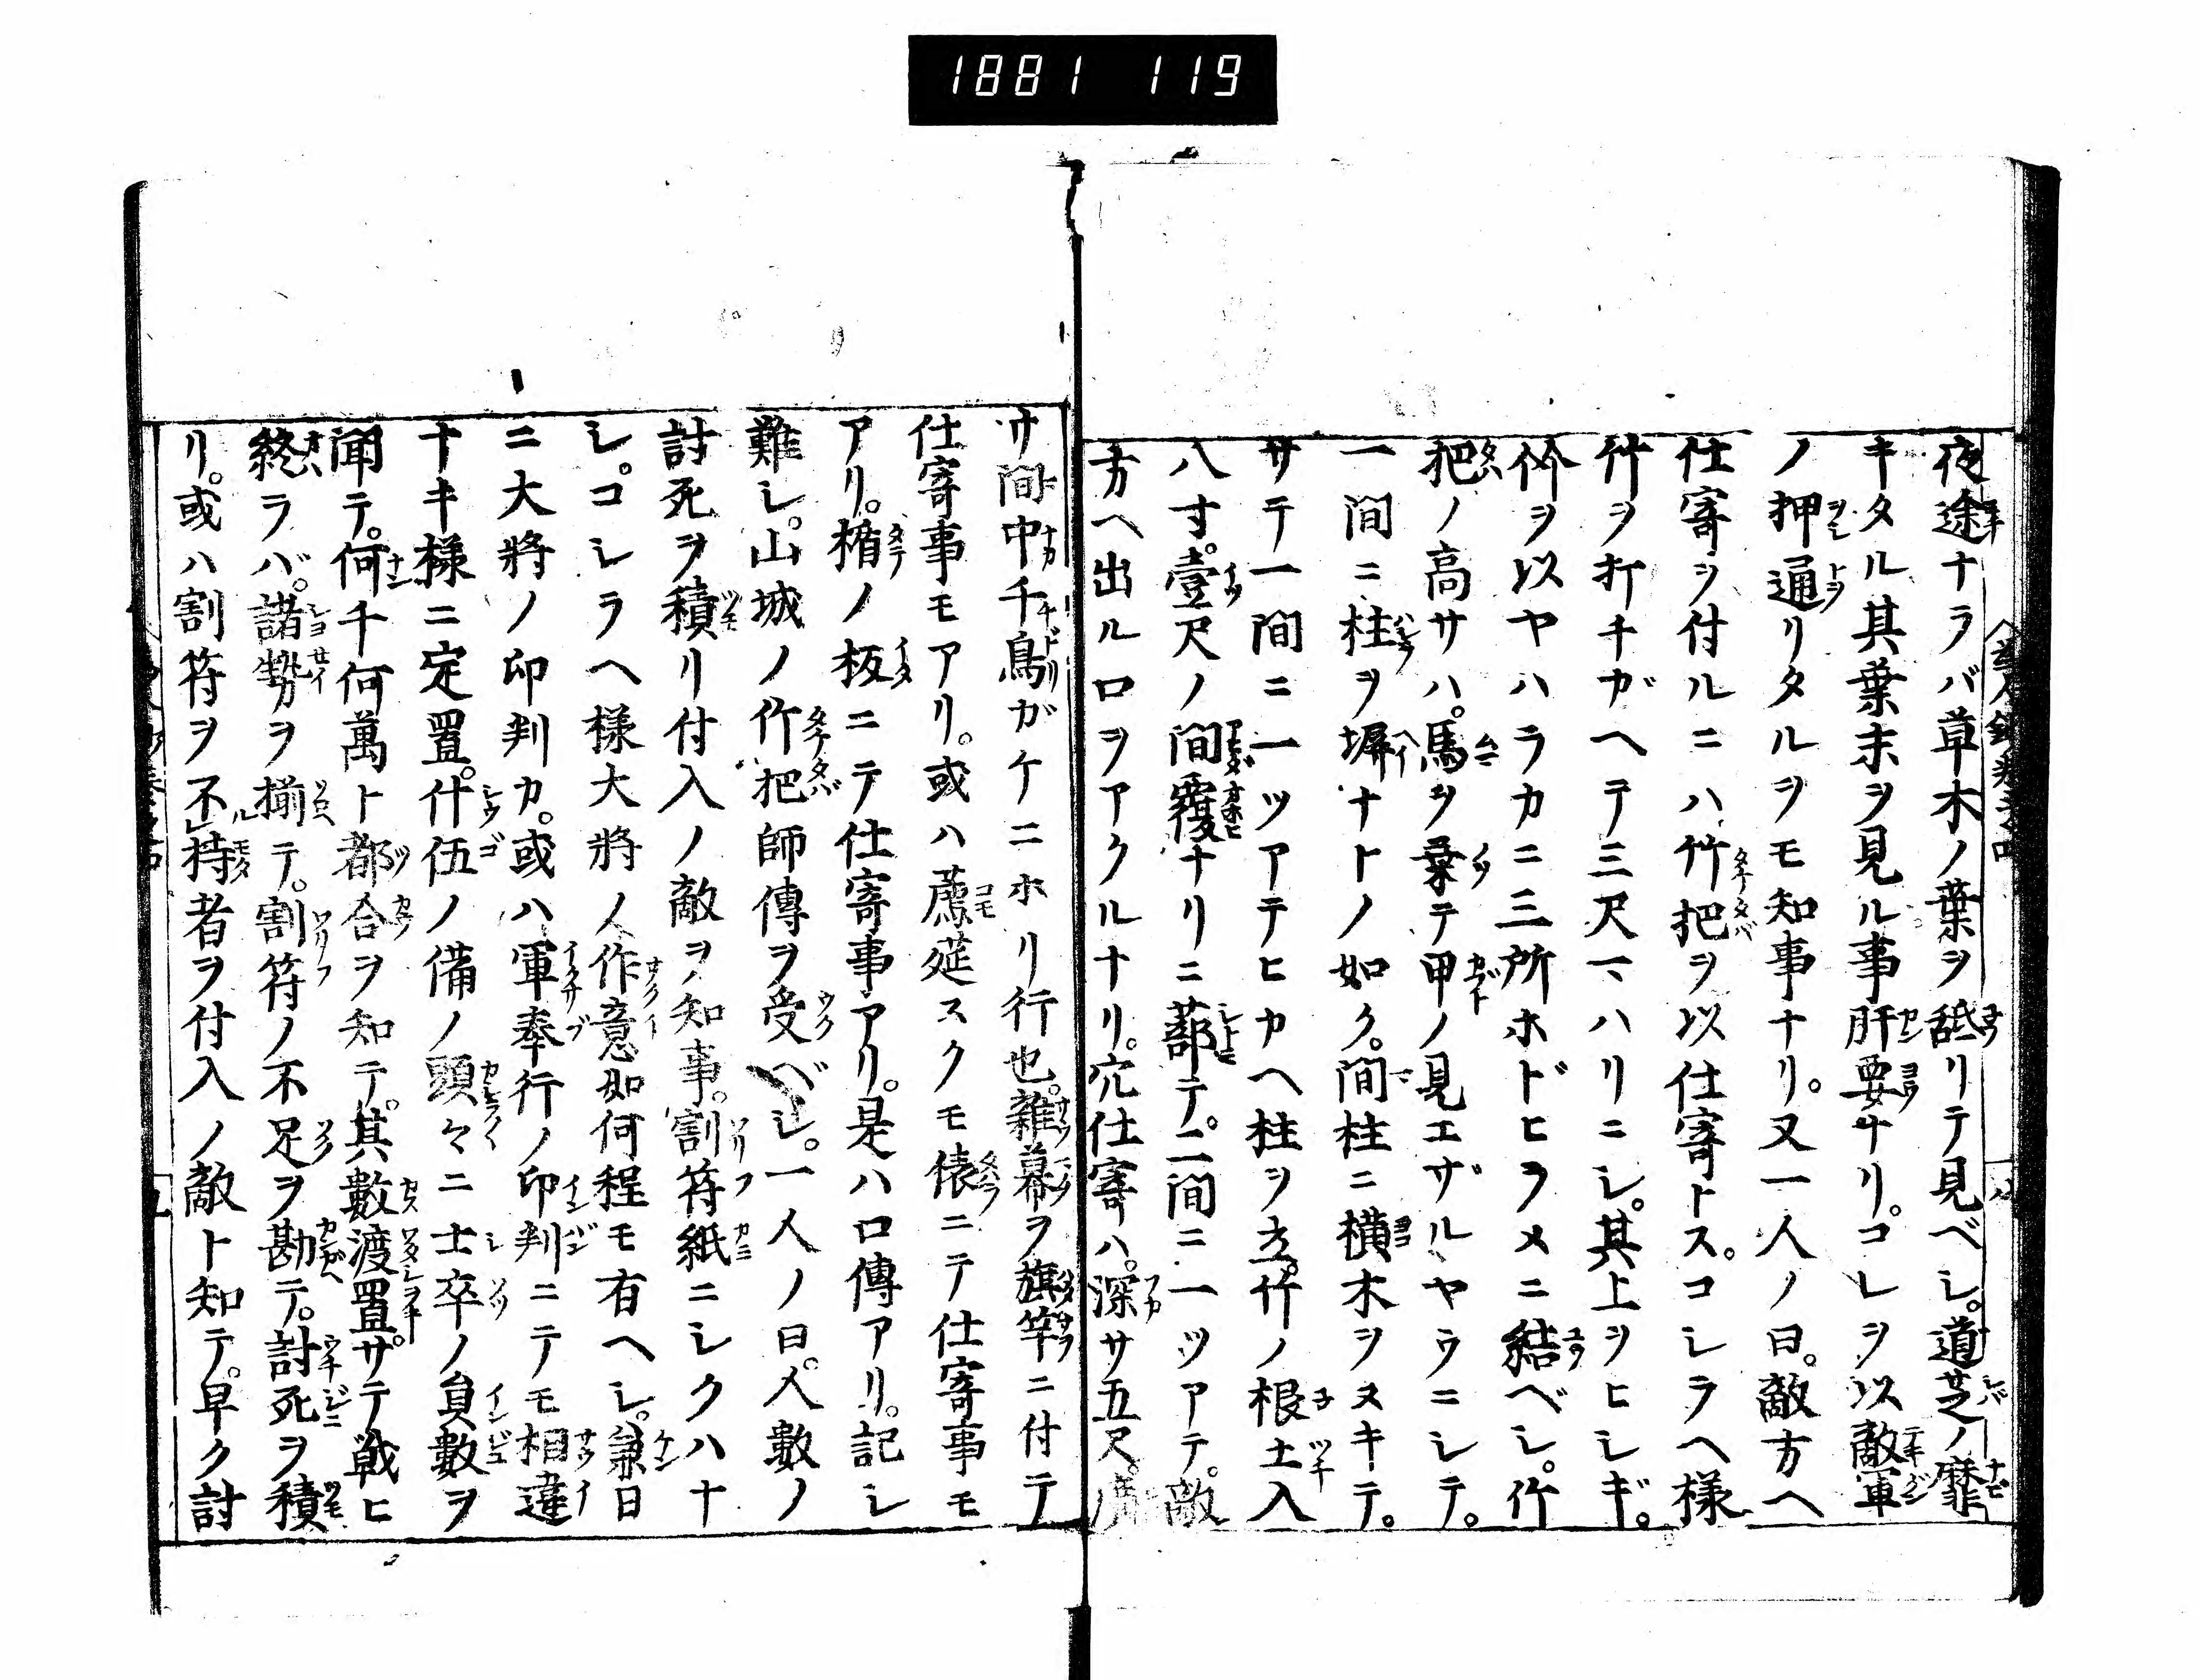 1881 119
夜途ナラバ草木ノ葉ヲ舐リテ見ベシ。道芝ノ靡
キタル其葉末ヲ見ル事肝要ナリ。コレヲ以敵軍
ノ押通リタルヲモ知事ナリ。又一人ノ曰。敵方ヘ
仕寄ヲ付ルニハ、竹把ヲ以仕寄トス。コシラヘ様
竹ヲ打チガヘテ三尺マハリニシ。其上ヲヒシギ。
竹ヲ以ヤハラカニ三所ホドヒラメニ結ベシ。竹
把ノ高サハ。馬ヲ乗テ甲ノ見エザルヤウニシテ。
一間ニ柱ヲ塀ナトノ如ク。間柱ニ横木ヲヌキテ。
サテ一間ニ一ツアテヒカヘ柱ヲ立。竹ノ根土入
八寸。壹尺ノ間覆ナリニ蔀テ。二間ニ一ツアテ。敵
方ヘ出ル口ヲアクルナリ。穴仕寄ハ。深サ五尺。廣
サ間中千鳥ガケニホリ行也。雑幕ヲ旗竿ニ付テ
仕寄事モアリ。或ハ薦莚スクモ俵ニテ仕寄事モ
アリ。楯ノ板ニテ仕寄事アリ。是ハ口傳アリ。記シ
難シ。山城ノ竹把師傳ヲ受ベシ。一人ノ曰。人數ノ
討死ヲ積リ付入ノ敵ヲ知事。割符紙ニシクハナ
シ。コシラヘ様大將ノ人作意如何程モ有ヘシ。兼日
ニ大將ノ印判カ。或ハ軍奉行ノ印判ニテモ相違
ナキ様ニ定置。什伍ノ備ノ頭々ニ士卒ノ員數ヲ
聞テ。何千何萬ト都合ヲ知テ。其數渡置。サテ戦ヒ
終ラバ。諸勢ヲ揃テ。割符ノ不足ヲ勘テ。討死ヲ積
リ。或ハ割符ヲ不持者ヲ付入ノ敵ト知テ。早ク討